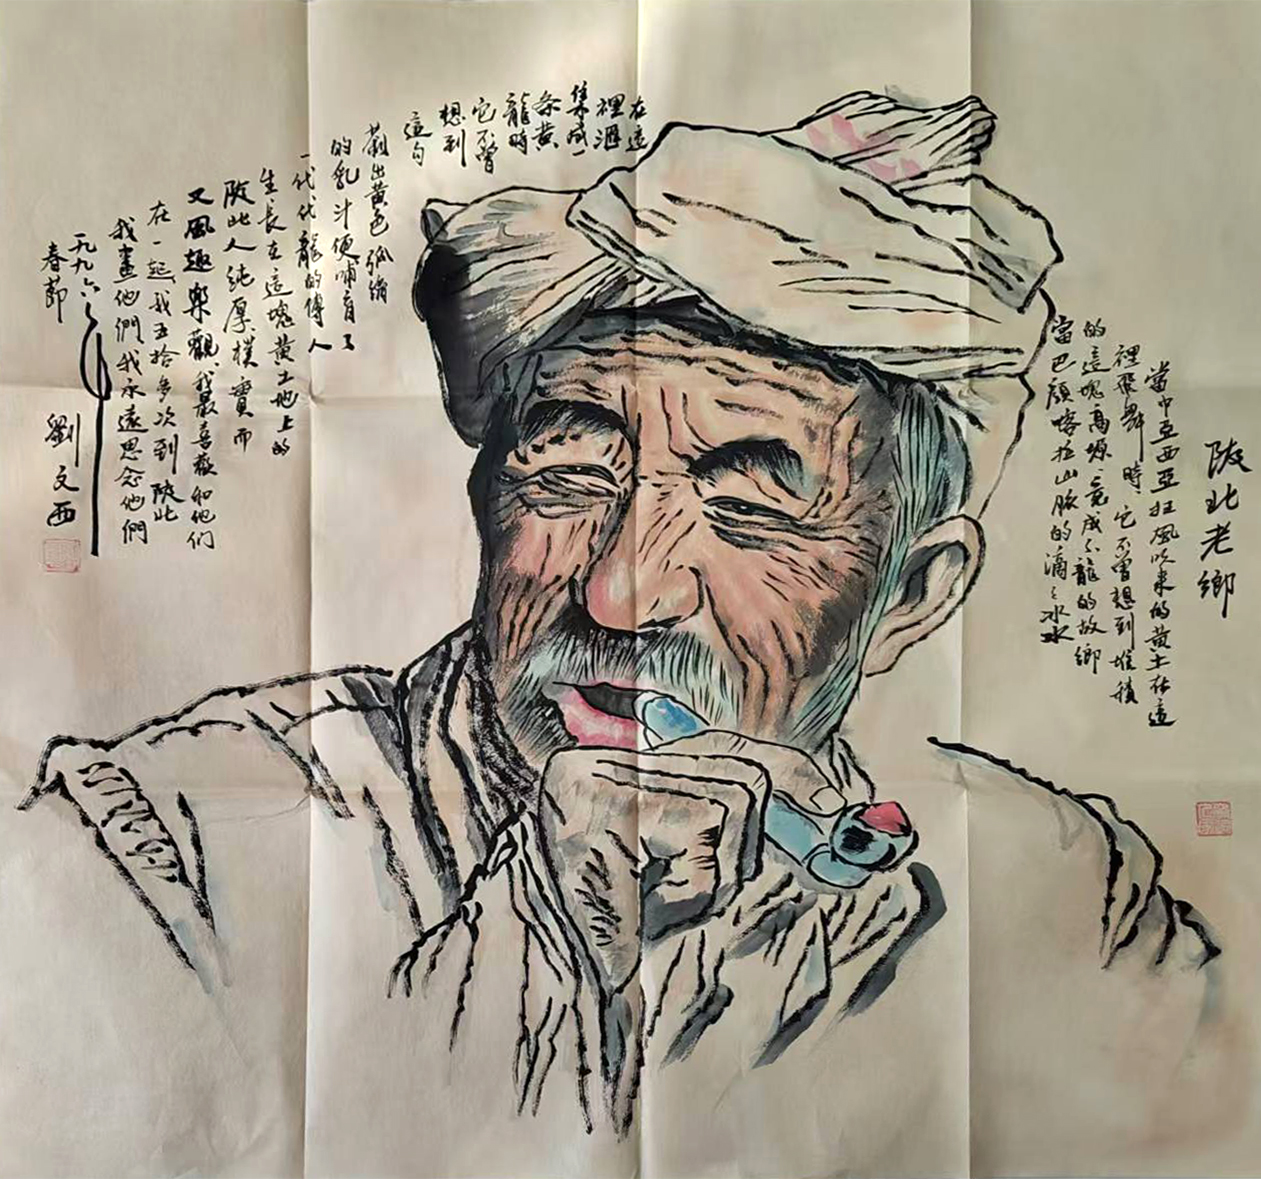 陝北老鄉
當中亞西亞狂風吹來的黃土在這
裡飛舞時、它不曾想到堆積
的這塊高塬、竟成了龍的故鄉
當巴顏喀拉山脈的滴〻冰水
在這
裡滙
集成一
条黃
龍時
它不曾
想到
這句
出黃色弧
的乳汁便哺育了
一代代龍的傳人
生長在這塊黃土地上的
陝北人純厚、樸實而
又風趣樂觀、我最喜歡和他们
在一起、我五拾多次到陝北
我畫他們我永遠思念他們
一九九六
春節
劉文西